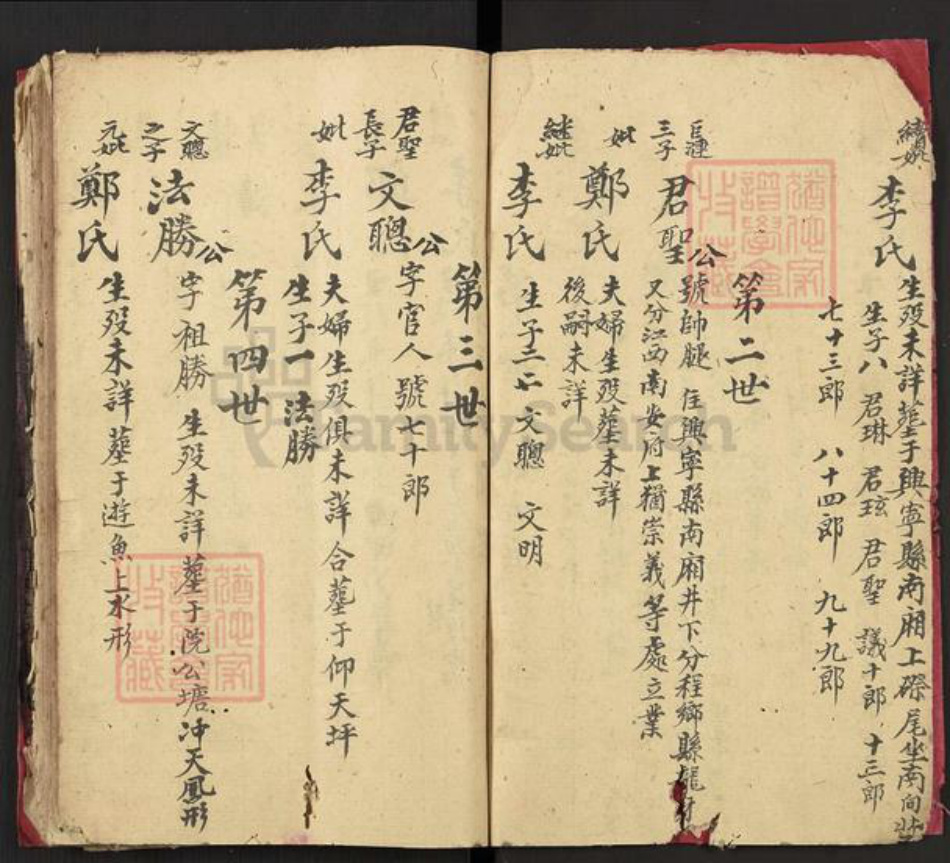 續妣
李氏
生殁未詳塟于興寧縣南廂上磜尾坐南向北
生子八 君琳 君玹 君聖 議十郎 十三郎
七十三郎 八十四郎 九十九郎
第二世
三子
君聖公
號帥腿 住興寧縣南廂井下分程鄉縣龍牙
又分江西南安府上猶崇義等處立業
妣
鄭氏
夫婦生殁塟未詳
後嗣未詳
継妣
李氏
生子二 文聰 文明
第三世
君聖
長子
文聰公
字官人 號七十郎
妣
李氏
夫婦生殁俱未詳合塟于仰天坪
生子一 法勝
第四世
文聰
之子
法勝公
字祖勝 生殁未詳塟于浣公塘冲天鳳形
元妣
鄭氏
生殁未詳塟于游魚上水形
FamilySearch